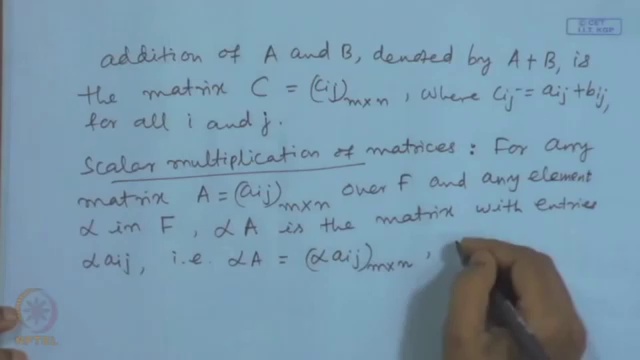 © CET
I.I.T. KGP
addition of A and B, denoted by A+B, is
the matrix C = (cij)m×n, where cij = aij + bij,
for all i and j.
Scalar multiplication of matrices: For any
matrix A = (aij)m×n over F and any element
α in F, αA is the matrix with entries
αaij, i.e. αA = (αaij)m×n,
NPTEL